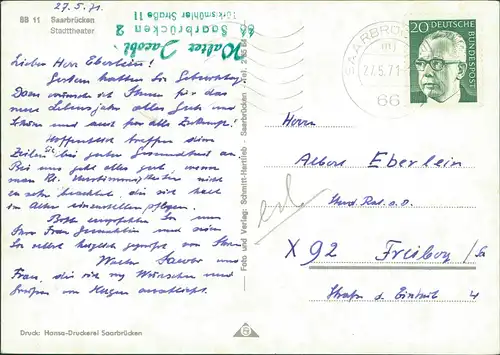 BB 11 Saarbrücken
Stadttheater
27.5.71
Walter Jacobi
66 Saarbrücken 2
Türkismühler Straße 11
Lieber Herr Eberlein!
Gestern hatten Sie Geburtstag.
Dazu wünsche ich Ihnen für das
neue Lebensjahr alles Gute und
Schöne und auch für alle Zukunft!
Hoffentlich treffen diese
Zeilen Sie bei guter Gesundheit an.
Bei uns geht alles gut, wenn
man kl. nicht
zu sehr beachtet, die sich halt
im Alter einzustellen pflegen.
Bitte empfehlen Sie uns
Ihrer Frau Gemahlin und seien
Sie selbst herzlich gegrüßt von Ihrem
Walter Jacobi und
Frau, die sich meinen Wünschen und
Grüßen von Herzen anschließt.
Druck: Hansa-Druckerei Saarbrücken
Foto und Verlag: Schmitt-Hartlieb - Saarbrücken - Tel.
SAARBRÜCKEN
27.5.71
66
20
DEUTSCHE BUNDESPOST
Herrn
Albert Eberlein
Stud. Rat. a. D.
X 92 Freiberg / Sa
Straße der Einheit 4